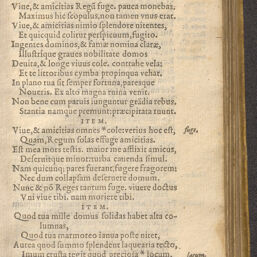 Viue, & amicitias Regũ fuge. pauca monebas,
Maximus hic scopulus, non tamen vnus erat.
Viue, & amicitias nimio splendore nitentes,
Et quicquid colitur perspicuum, fugito.
Ingentes dominos, & famæ nomina claræ,
Illustrique graues nobilitate domos
Deuita, & longe viuus cole. contrahe vela:
Et te littoribus cymba propinqua vehat.
In plano tua sit semper fortuna, paresque
Noueris. Ex alto magna ruina venit.
Non bene cum paruis iunguntur grãdia rebus,
Stantia namque premunt: præcipitata ruunt.
ITEM.
Viue, & amicitias omnes * cole: verius hoc est, fuge.
Quam, Regum solas effuge amicitias.
Est mea mors testis. maior me afflixit amicus,
Deseruitque minor. turba cauenda simul.
Nam quicunq; pares fuerant, fugere fragorem:
Nec dum collapsam deseruere domum.
Nunc & nõ Reges tantum fuge. viuere doctus
Vni viue tibi. nam moriere tibi.
ITEM.
Quod tua mille domus solidas habet alta columnas,
Quod tua marmoreo ianua poste nitet,
Aurea quod summo splendent laquearia tecto,
Imum crusta tegit quod preciosa * locum, lacum.